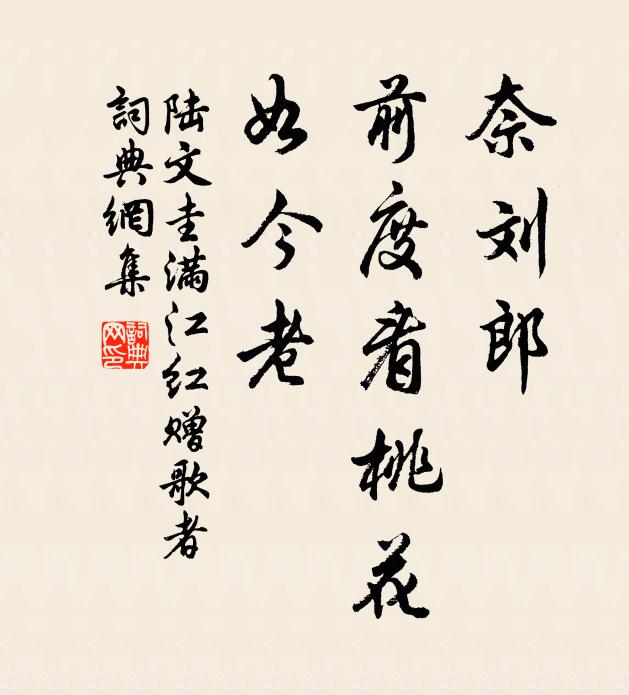 奈刘郎
前度看桃花
如今老
陆文圭满江红赠歌者
詞典網集
詞典
网印